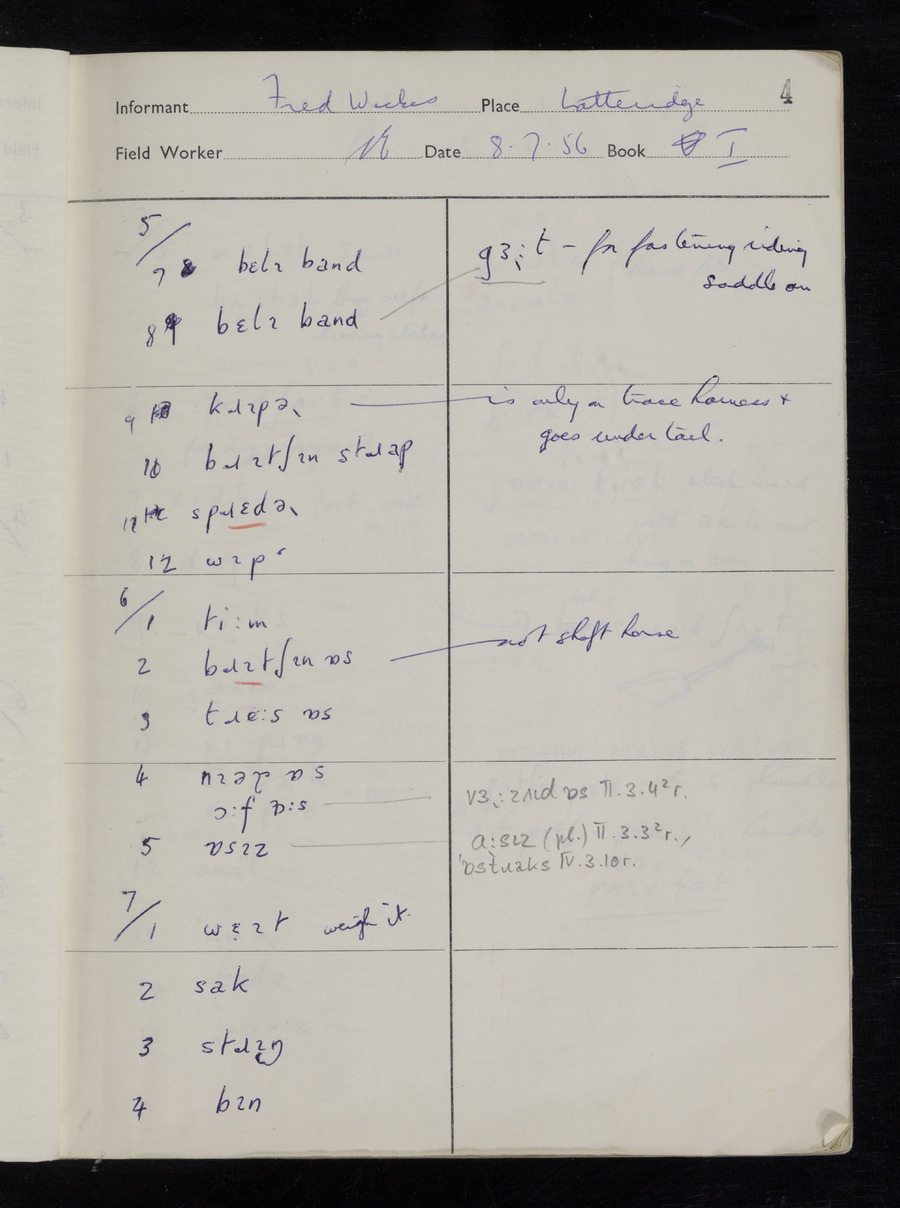 4
Informant Fred Weekes Place Latteridge
Field Worker Date 8.7.56 Book I
5/
7 belɪ band
gɜ˞:t – for fastening riding
saddle on
8 bɛlɪ band
9 kɹɪpə˞ is only on trace harness +
goes under tail.
10 bɹɪtʃɪn stɹap
11 spɹɛdə˞
12 wɪp
6/
1 ti:m
2 bɹɪtʃɪn ɒs not shaft horse
3 tɹɛ:s ɒs
4
vɜ˞:ɪɹɪd ɒs II.3.4²r.
5 ɒsɪz
a:sɪz (pl.) II.3.3²r.,
IV.3.10r.
7/
1 wɛɪt weigh it.
2 sak
3 stɹɪŋ
4 bɪn